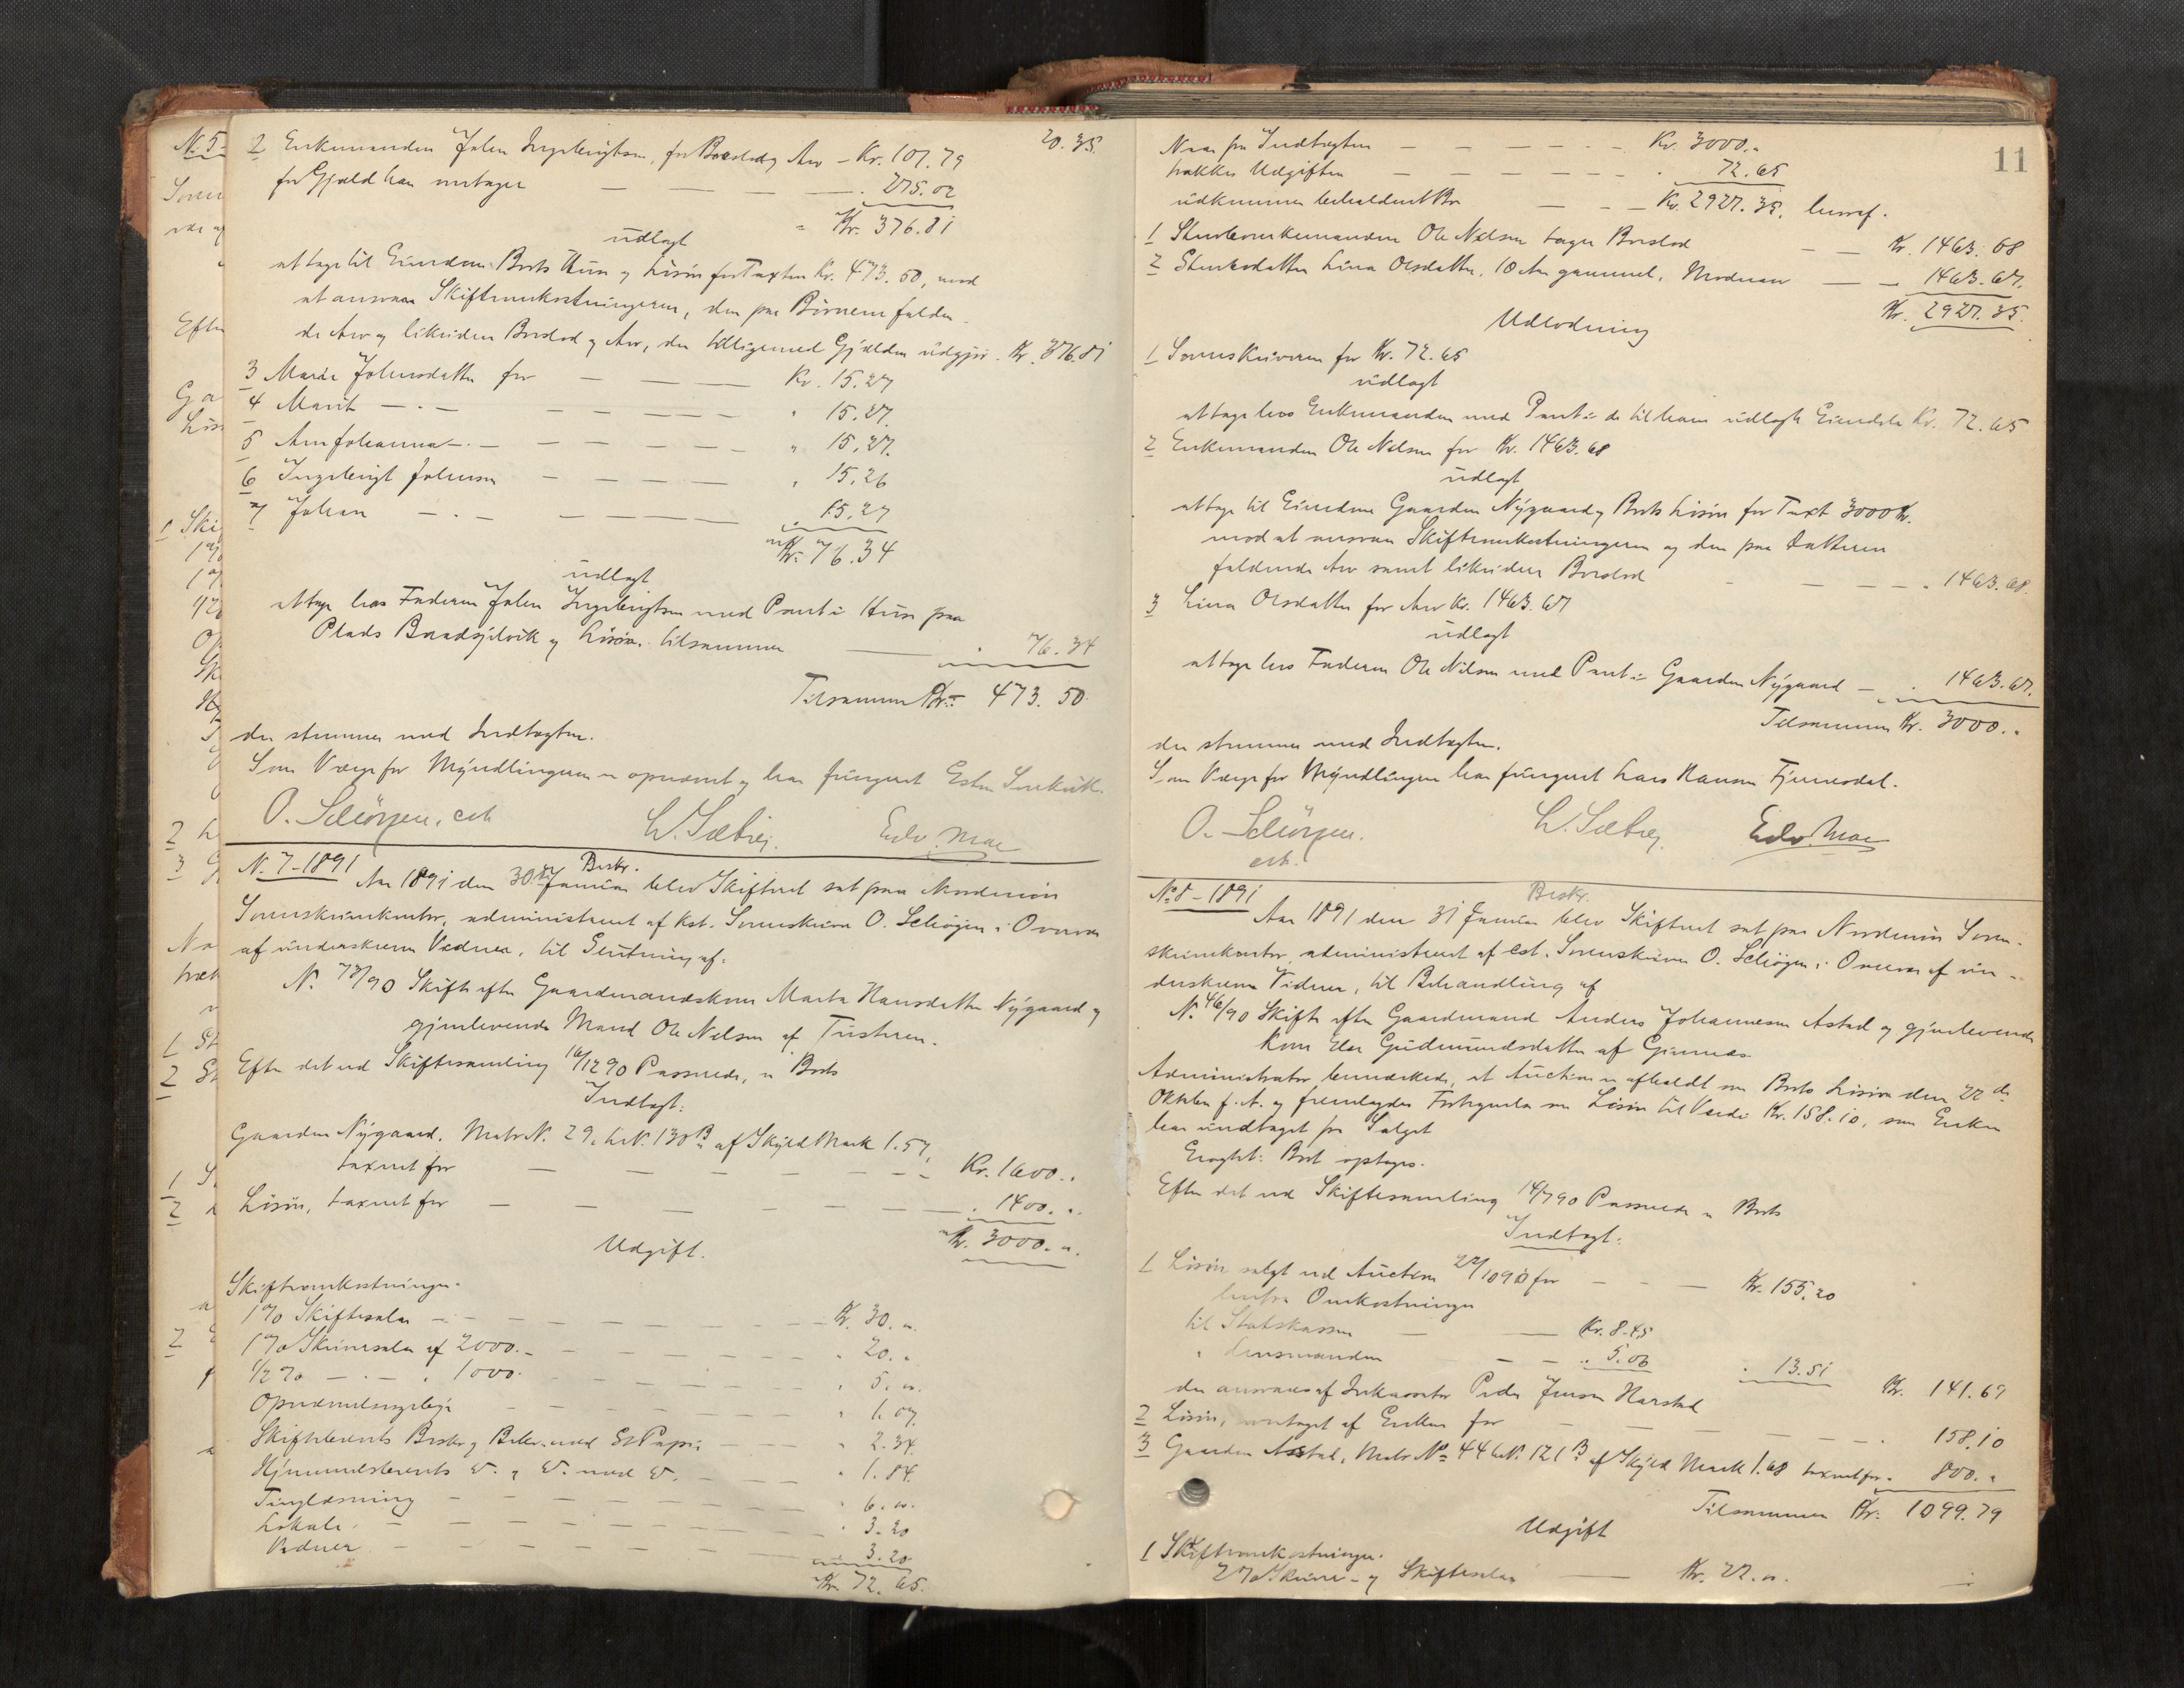 20.35.
2 Enkemanden John Ingebrigtsen, for Boeslod og Arv - Kr. 101.79
for Gjæld han vertager — — — 275.02
Kr. 376.81
udlagt
at tage til Eiendom Boets Huse og Løsøre for Taxten Kr. 473.50, mod
at ansvare Skifteomkostningerne, den paa Børnene falden-
de Arv og likvidere Boeslod og Arv, der tilligemed Gjælden udgjør. Kr. 376.81
3 Marie Johnsdatter for — — — Kr. 15.27
4 Marit — . — — — — — — " 15.27.
5 Ane Johanna — . — — — — — " 15.27.
6 Ingebrigt Johnsen — — — — " 15.26
7 Johan — . — — — — — " 15.27
Kr. 76.34
udlagt
at tage hos Faderen John Ingebrigtsen med Pant i Huse paa
Plads Bradsjelvik og Løsøre. tilsammen — . 76.34
Tilsammen Kr. 473.50.
der stemmer med Indtægten.
Som Værge for Myndlingerne er opnævnt og har fungeret Esten
O. Schiörgen, cst. W. Sæbø. Edv. Moe
N. 7-1891 Beskr.
Aar 1891 den 30te Januar blev Skifteret sat paa Nordmøre
Sorenskriverkontor, administreret af kst. Sorenskriver O. Schiörgen i Overvær
af underskrevne Vidner, til Slutning af:
N. 78/90 Skifte efter Gaardmandskone Marta Hansdatter Nygaard og
gjenlevende Mand Ole Nelsen af Tusteren.
Efter det ved Skiftesamling 16/12 90 Passerede, er Boets
Indtægt:
Gaarden Nygaard. Matr N. 29, L.N. 130B af Skyld Mark 1.57,
taxeret for — — — — — — Kr. 1600. "
Løsøre, taxeret for — — — — — — . 1400. "
Kr. 3000. "
Udgift.
Skifteomkostninger.
1% Skiftesalær — — — — — — Kr. 30. "
1% Skriversalær af 2000. — — — — — " 20. "
1/2 % — . — " 1000. — — — — — " 5. "
Opnævnelsesgebyr — — — — — " 1.07
Skiftebrevets Beskr. og Bekr. med St Papir — — — " 2.34
Hjemmelsbrevets D. og D. med D. — — — " 1.84
Tinglæsning — — — — — — " 6. "
Lokale. — — — — — — " 3.20
Vidner — — — — — — 3.20
Kr. 72.65.
11
Naar fra Indtægten — — — — — Kr. 3000. "
trækkes Udgiften — — — — — — . 72.65
udkommer beholdent Bo — — — Kr. 2927.35. hvoraf.
1 Stervboenkemanden Ole Nelsen tager Boeslod — — Kr. 1463.68
2 Stervbodatter Lina Olsdatter, 10 Aar gammel, Modrearv — — 1463.67.
Kr. 2927.35.
Udlodning
1 Sorenskriveren for Kr. 72.65
udlagt
at tage hos Enkemanden med Pant i de til ham udlagte Eiendele Kr. 72.65
2 Enkemanden Ole Nelsen for Kr. 1463.68
udlagt
at tage til Eiendom Gaarden Nygaard og Boets Løsøre for Taxt 3000 Kr.
mod at ansvare Skifteomkostningerne og den paa Datteren
faldende Arv samt likvidere Boeslod — — — — . 1463.68.
3 Lina Olsdatter for Arv Kr. 1463.67
udlagt
at tage hos Faderen Ole Nilsen med Pant i Gaarden Nygaard — . 1463.67.
Tilsammen Kr. 3000. "
der stemmer med Indtægten.
Som Værge for Myndlingen har fungeret Lars Hansen
O. Schiörgen. W. Sæbø. Edv. Moe
cst.
No 8-1891 Beskr.
Aar 1891 den 31 Januar blev Skifteret sat paa Nordmøre Soren-
skriverkontor, administreret af cst. Sorenskriver O. Schiörgen i Overvær af un-
derskrevne Vidner, til Behandling af
N. 46/90 Skifte efter Gaardmand Anders Johannesen Astad og gjenlevende
Kone Else Gudmundsdatter af Gimnæs.
Administrator bemærkede, at Auction er afholdt over Boets Løsøre den 22de
Oktober f. A. og fremlagdes Fortegnelse over Løsøre til Værdi Kr. 158.10, som Enken
har undtaget fra Salget
Eragtet: Boet optages.
Efter det ved Skiftesamling 14/7 90 Passerede er Boets
Indtægt:
1 Løsøre solgt ved Auction 22/10 90 for — — — Kr. 155.20
herfra Omkostninger
til Statskassen — — Kr. 8.45
" Lensmanden — — " 5.06 . 13.51
der ansvares af Inkassator Peder Jensen Harstad Kr. 141.69
2 Løsøre, overtaget af Enken for — — — — — . 158.10
3 Gaarden Astad, Matr No 44 L.N. 121B af Skyld Mark 1.68 taxeret for . 800. "
Tilsammen Kr. 1099.79
Udgift
1 Skifteomkostninger.
2% Skriver- og Skiftesalær — Kr. 22. "